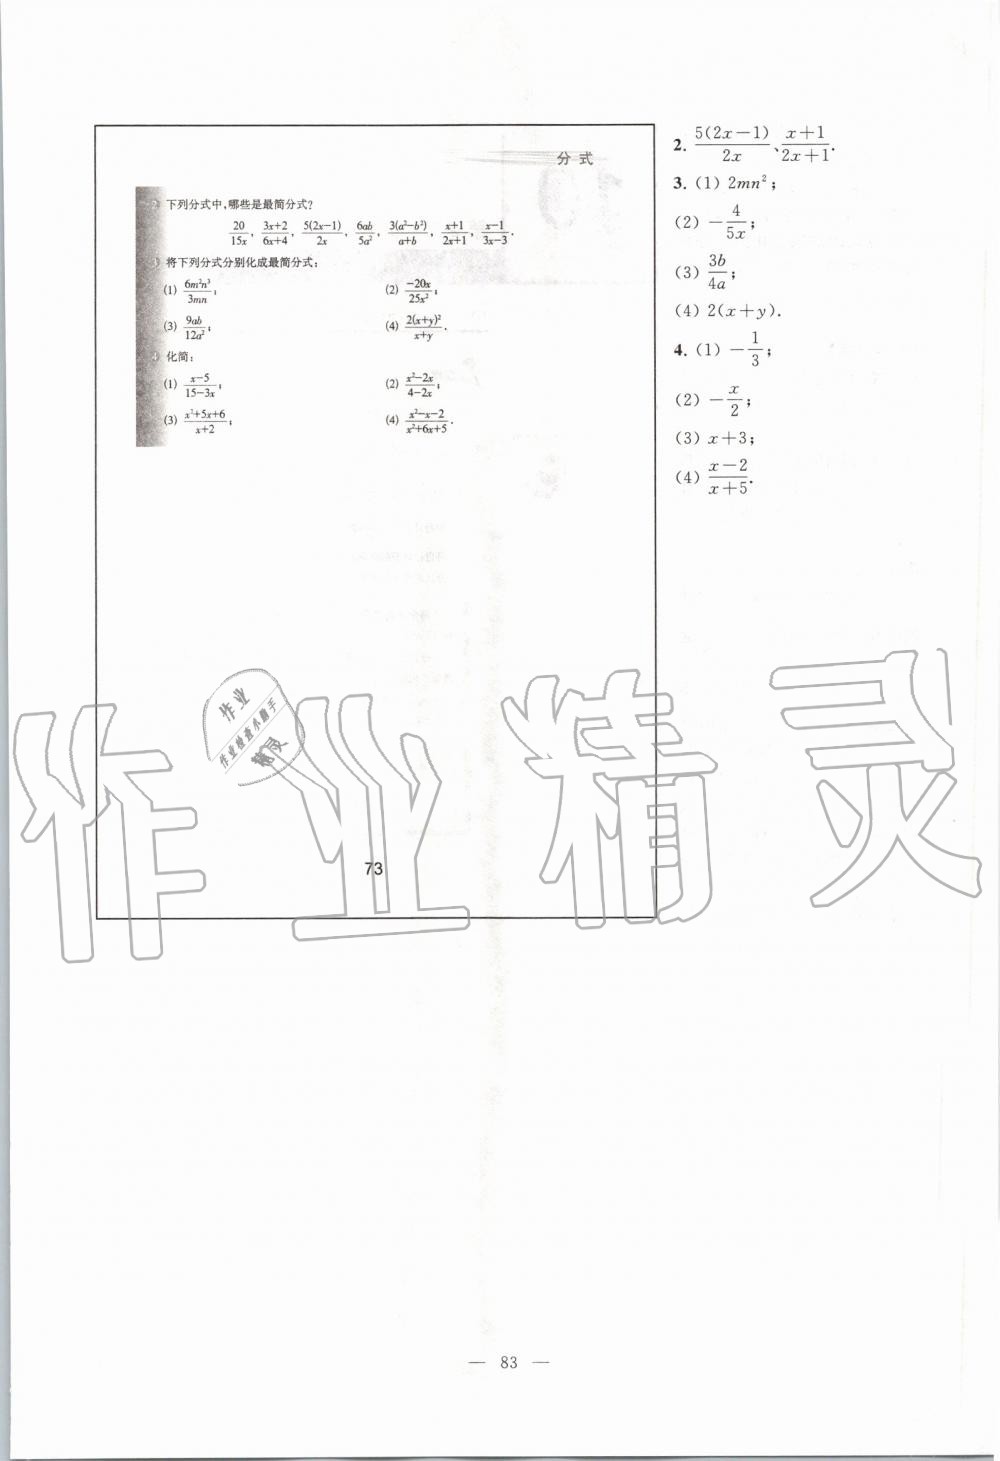 分 式
2 下列分式中,哪些是最简分式?
20/15x, 3x+2/6x+4, 5(2x-1)/2x, 6ab/5a², 3(a²-b²)/a+b, x+1/2x+1, x-1/3x-3.
3 将下列分式分别化成最简分式:
(1) 6m²n³/3mn; (2) -20x/25x²;
(3) 9ab/12a²; (4) 2(x+y)²/x+y.
4 化简:
(1) x-5/15-3x; (2) x²-2x/4-2x;
(3) x²+5x+6/x+2; (4) x²-x-2/x²+6x+5.
73
2. 5(2x-1)/2x、x+1/2x+1.
3. (1) 2mn²;
(2) -4/5x;
(3) 3b/4a;
(4) 2(x+y).
4. (1) -1/3;
(2) -x/2;
(3) x+3;
(4) x-2/x+5.
作业
作业检查小助手
精灵
作业精灵
— 83 —